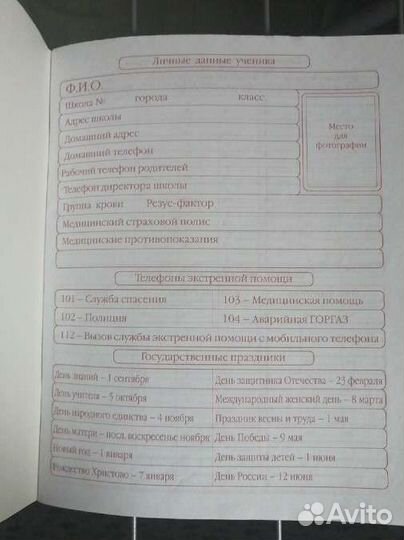 Личные данные ученика
Ф.И.О.
Школа № города класс
Адрес школы
Домашний адрес
Домашний телефон
Рабочий телефон родителей
Телефон директора школы
Место
для
фотографии
Группа крови Резус-фактор
Медицинский страховой полис
Медицинские противопоказания
Телефоны экстренной помощи
101 – Служба спасения 103 – Медицинская помощь
102 – Полиция 104 – Аварийная ГОРГАЗ
112 – Вызов службы экстренной помощи с мобильного телефона
Государственные праздники
День знаний – 1 сентября День защитника Отечества – 23 февраля
День учителя – 5 октября Международный женский день – 8 марта
День народного единства – 4 ноября Праздник весны и труда – 1 мая
День матери – посл. воскресенье ноября День Победы – 9 мая
Новый год – 1 января День защиты детей – 1 июня
Рождество Христово – 7 января День России – 12 июня
Avito